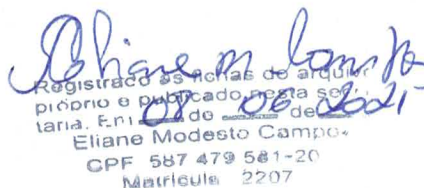 Eliane M. Campos
Registrado às fichas de arquivo
próprio e publicado nesta secre
taria. Em 08 de 06 de 2021
Eliane Modesto Campos
CPF 587 479 581-20
Matrícula 2207